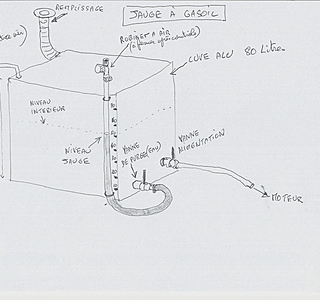 REMPLISSAGE
JAUGE À GASOIL
ROBINET A AIR
CUVE ALU 80 Litres
NIVEAU
INTERIEUR
NIVEAU
JAUGE
VANNE
DE PURGE (EAU)
VANNE
ALIMENTATION
MOTEUR